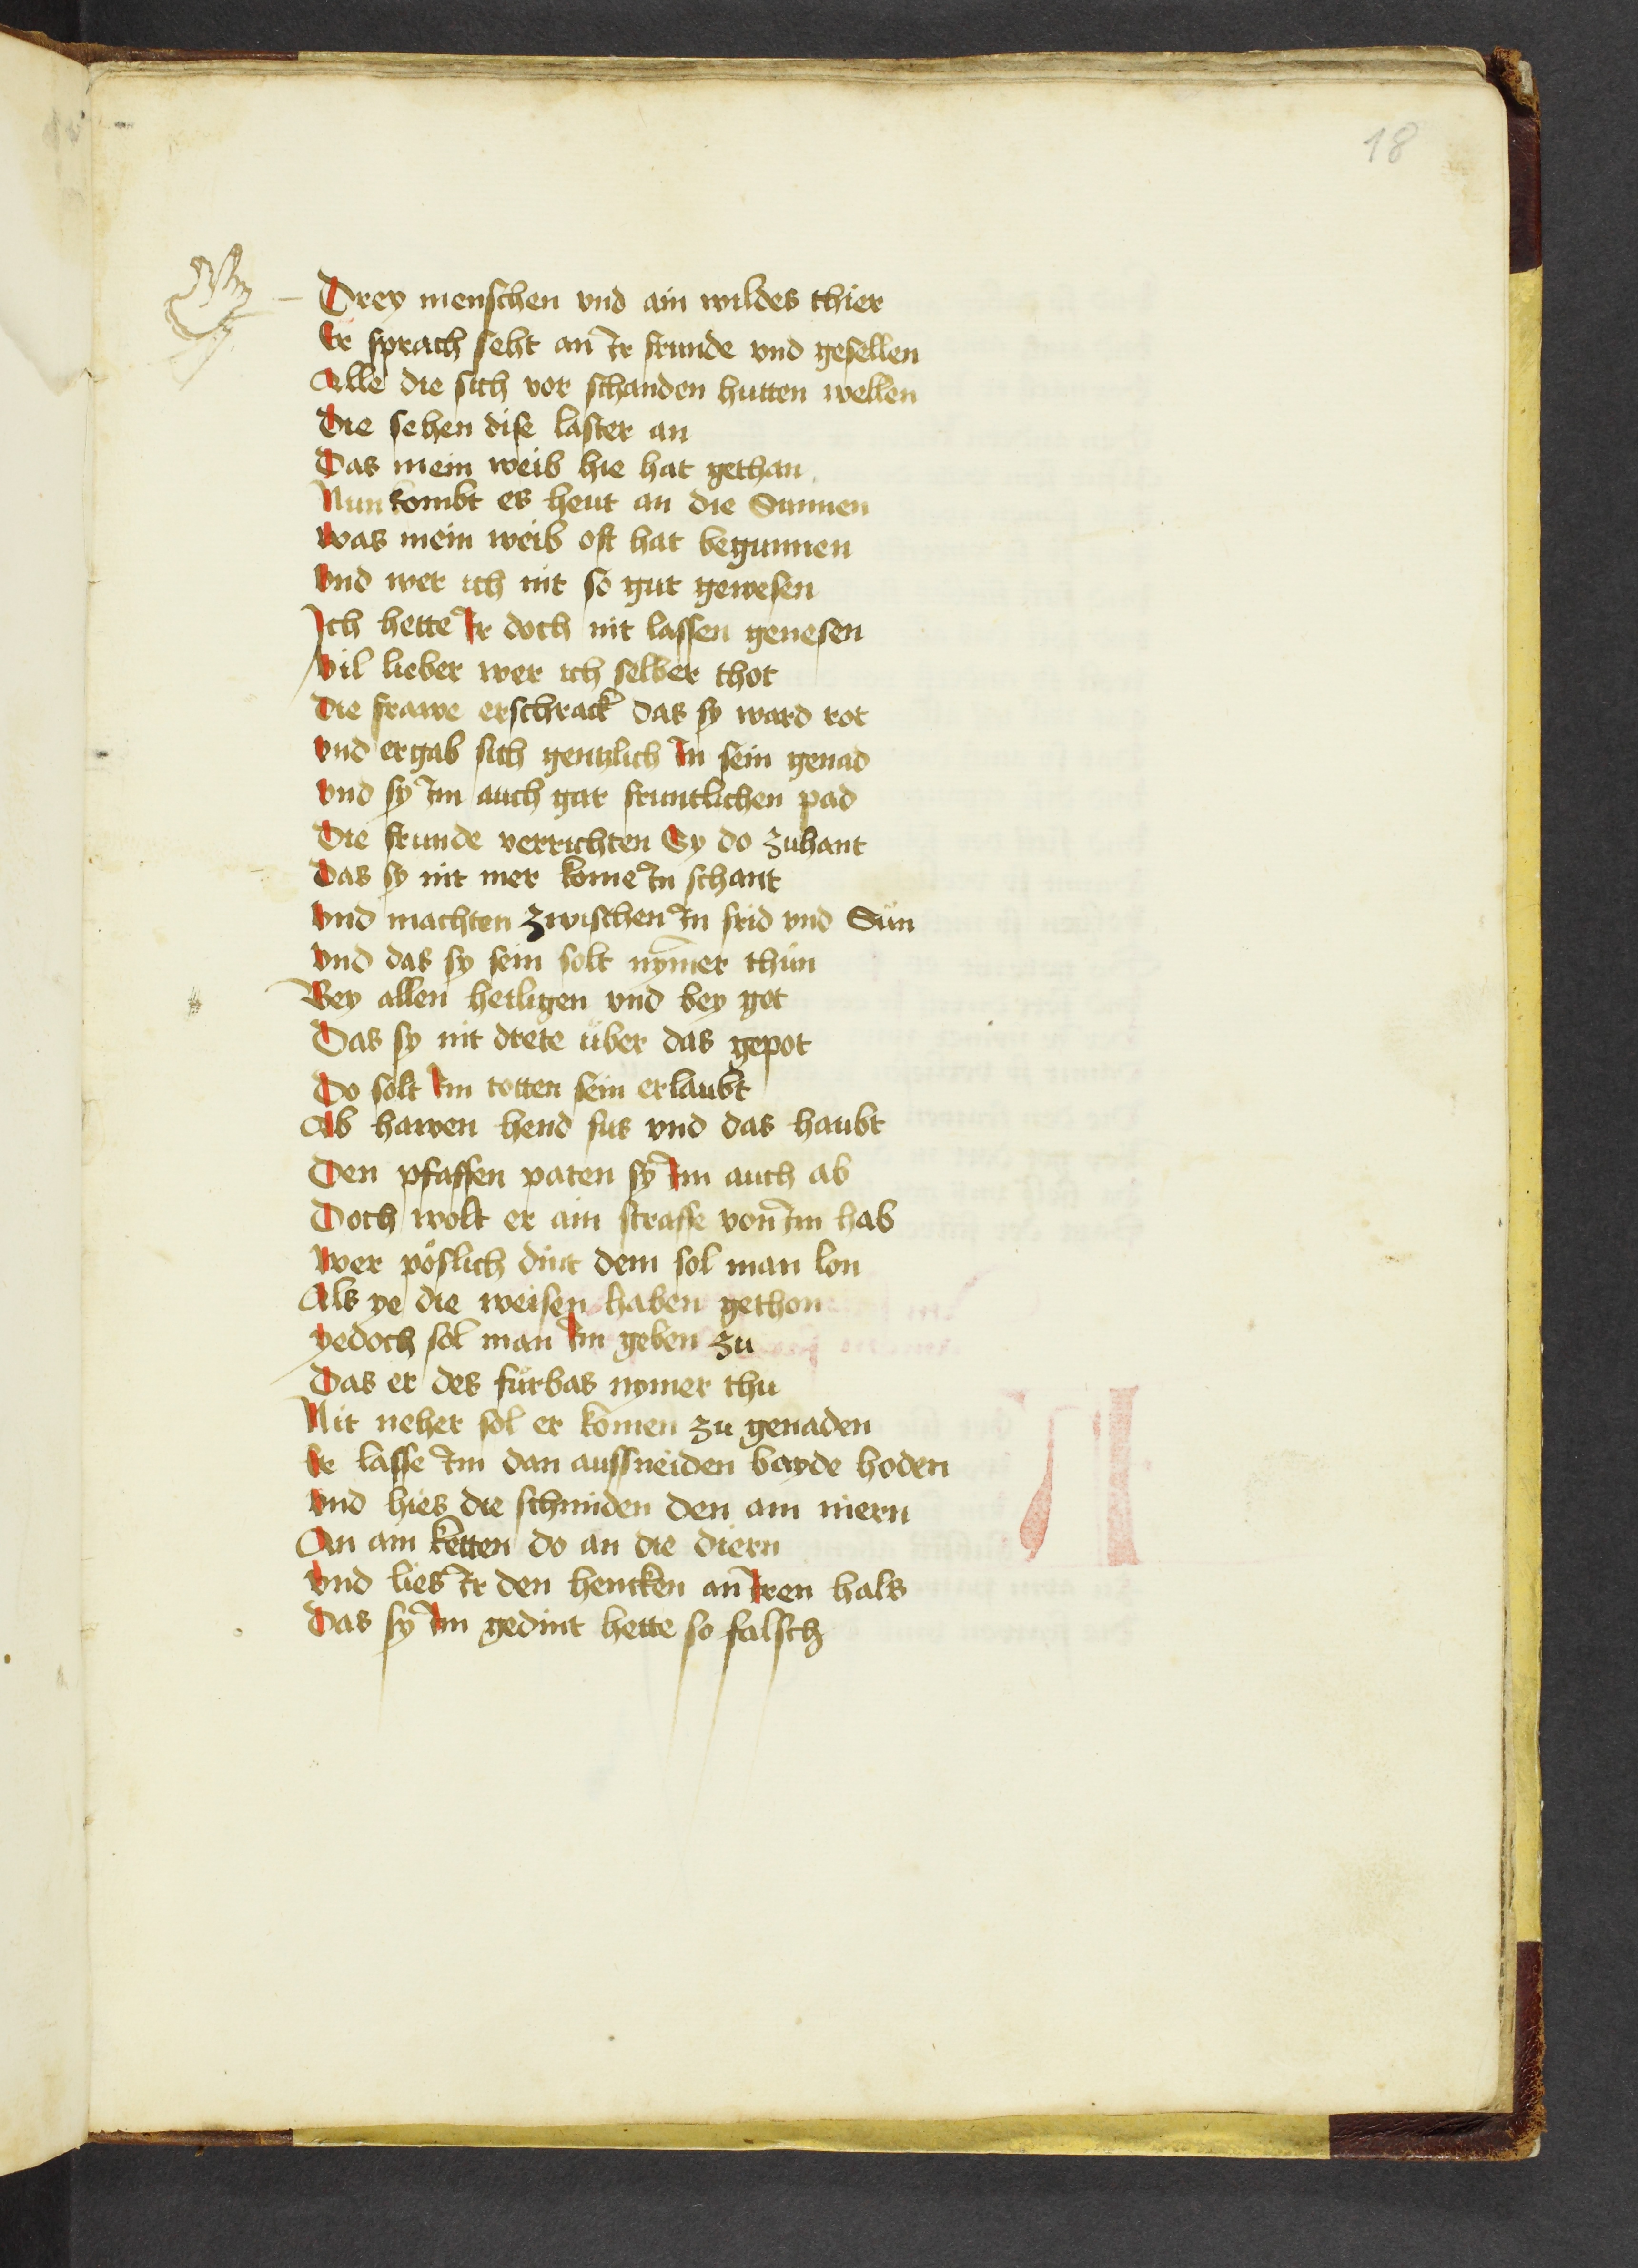 18
Drey menschen vnd ain wildes thier
Er sprach seht an Ir frunde vnd gesellen
Alle die sich vor schanden hutten wellen
Die sehen dise laster an
Das mein weib hie hat gethan
Nun kombt es heut an die Sunnen
Was mein weib oft hat begunnen
Vnd wer ich nit so gut gewesen
Ich hette Ir doch nit lassen genesen
Vil lieber wer ich selber thot
Die frawe erschrack das sy ward rot
Vnd ergab sich gentzlich In sein genad
Vnd sy Im auch gar fruntlichen pad
Die frunde verrichten Sy do zuhant
Das sy nit mer kome In schant
Vnd machten zwischen In frid vnd Sün
Vnd das sy sein solt nymer thün
Bey allen heiligen vnd bey got
Das sy nit drete über das gepot
Do solt Im totten sein erlaubt
Ab hawen hend fus vnd das haubt
Den pfaffen paten sy Im auch ab
Doch wolt er ain straffe von Im hab
Wer pöslich dint dem sol man lon
Als ye die weisen haben gethon
yedoch sol man Im geben zu
Das er des fürbas nymer thu
Nit neher sol er komen zu genaden
Er lasse Im dan aussneiden bayde hoden
Vnd hies die schmiden den am niern
An ain ketten do an die diern
Vnd lies Ir den hencken an Iren hals
Das sy Im gedint hette so falsch